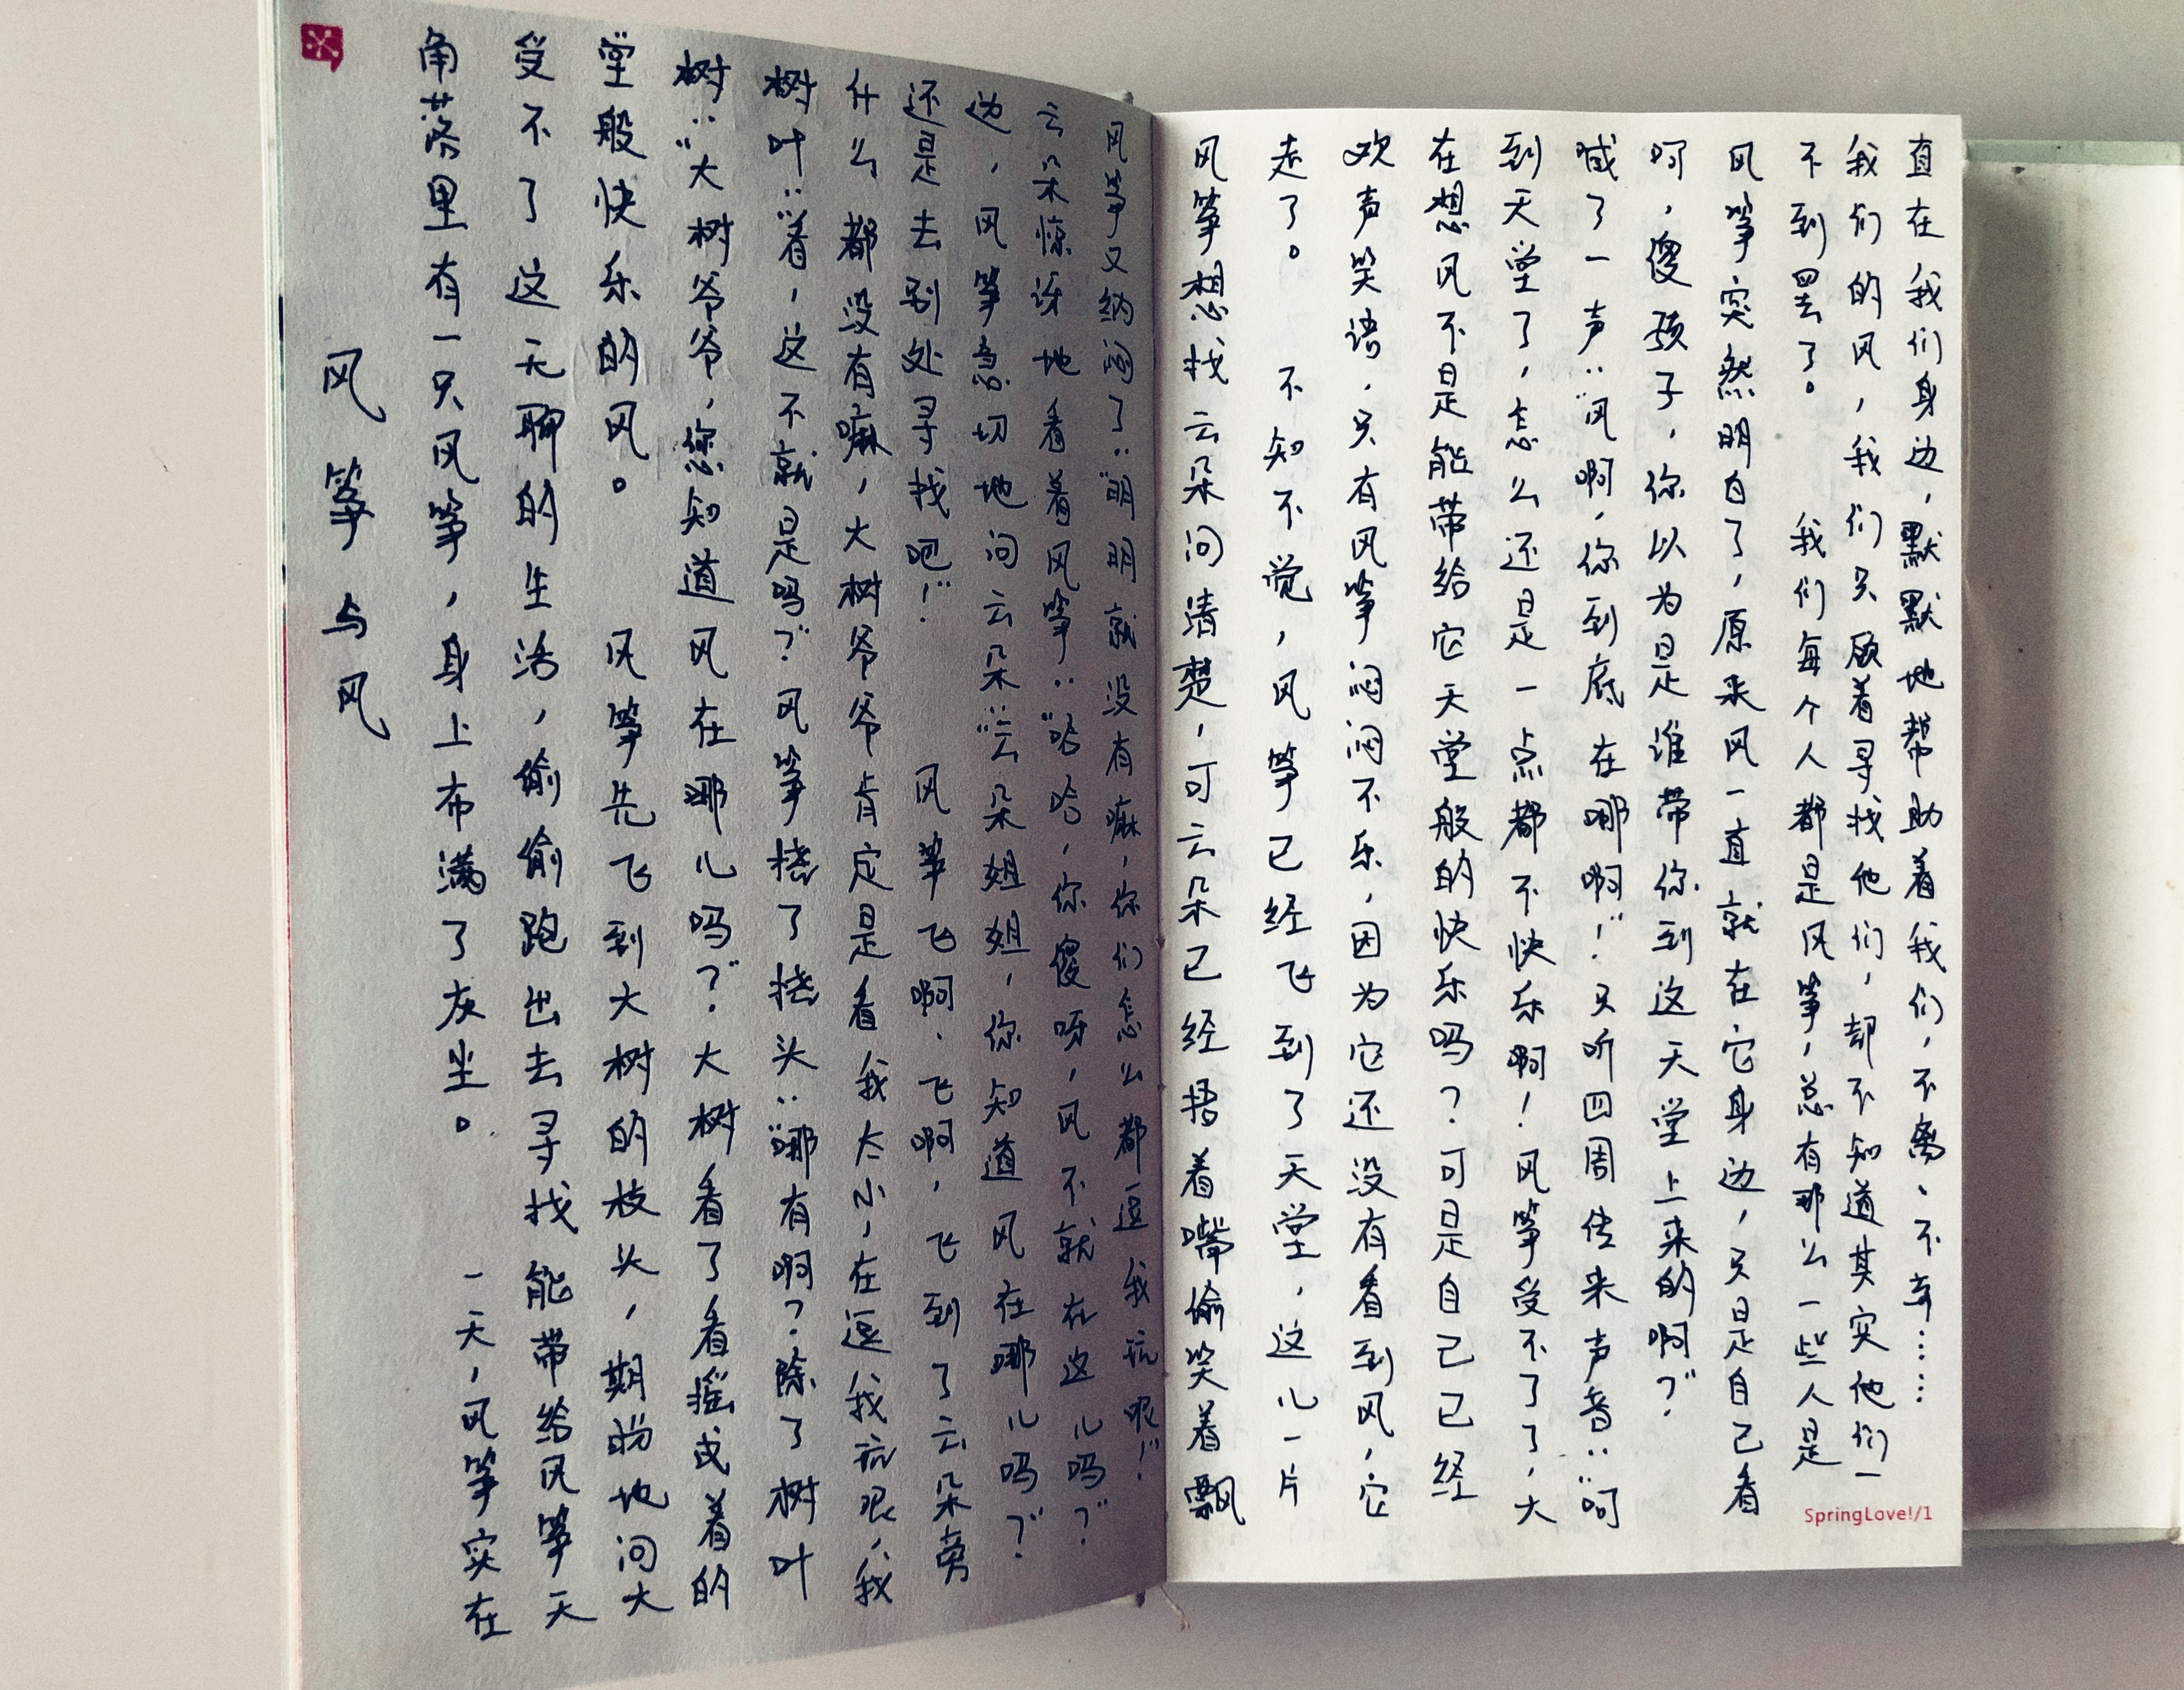 风筝与风
角落里有一只风筝，身上布满了灰尘。　　一天，风筝实在
受不了这无聊的生活，偷偷跑出去寻找能带给风筝天
堂般快乐的风。　　风筝先飞到大树的枝头，期盼地问大
树：“大树爷爷，您知道风在哪儿吗？”大树看了看摇曳着的
树叶：“看，这不就是吗？”风筝挠了挠头：“哪有啊？除了树叶
什么都没有嘛，大树爷爷肯定是看我太小，在逗我玩呢，我
还是去别处寻找吧！”　　风筝飞啊，飞啊，飞到了云朵旁
边，风筝急切地问云朵：“云朵姐姐，你知道风在哪儿吗？”
云朵惊讶地看着风筝：“哈哈，你傻呀，风不就在这儿吗？”
风筝又纳闷了：“明明就没有嘛，你们怎么都逗我玩呢！”
风筝想找云朵问清楚，可云朵已经捂着嘴偷笑着飘
走了。　　不知不觉，风筝已经飞到了天堂，这儿一片
欢声笑语，只有风筝闷闷不乐，因为它还没有看到风，它
在想风不是能带给它天堂般的快乐吗？可是自己已经
到天堂了，怎么还是一点都不快乐啊！风筝受不了了，大
喊了一声：“风啊，你到底在哪啊！”只听四周传来声音：“呵
呵，傻孩子，你以为是谁带你到这天堂上来的啊？”
风筝突然明白了，原来风一直就在它身边，只是自己看
不到罢了。　　我们每个人都是风筝，总有那么一些人是
我们的风，我们只顾着寻找他们，却不知道其实他们一
直在我们身边，默默地帮助着我们，不离、不弃……
SpringLove!/1